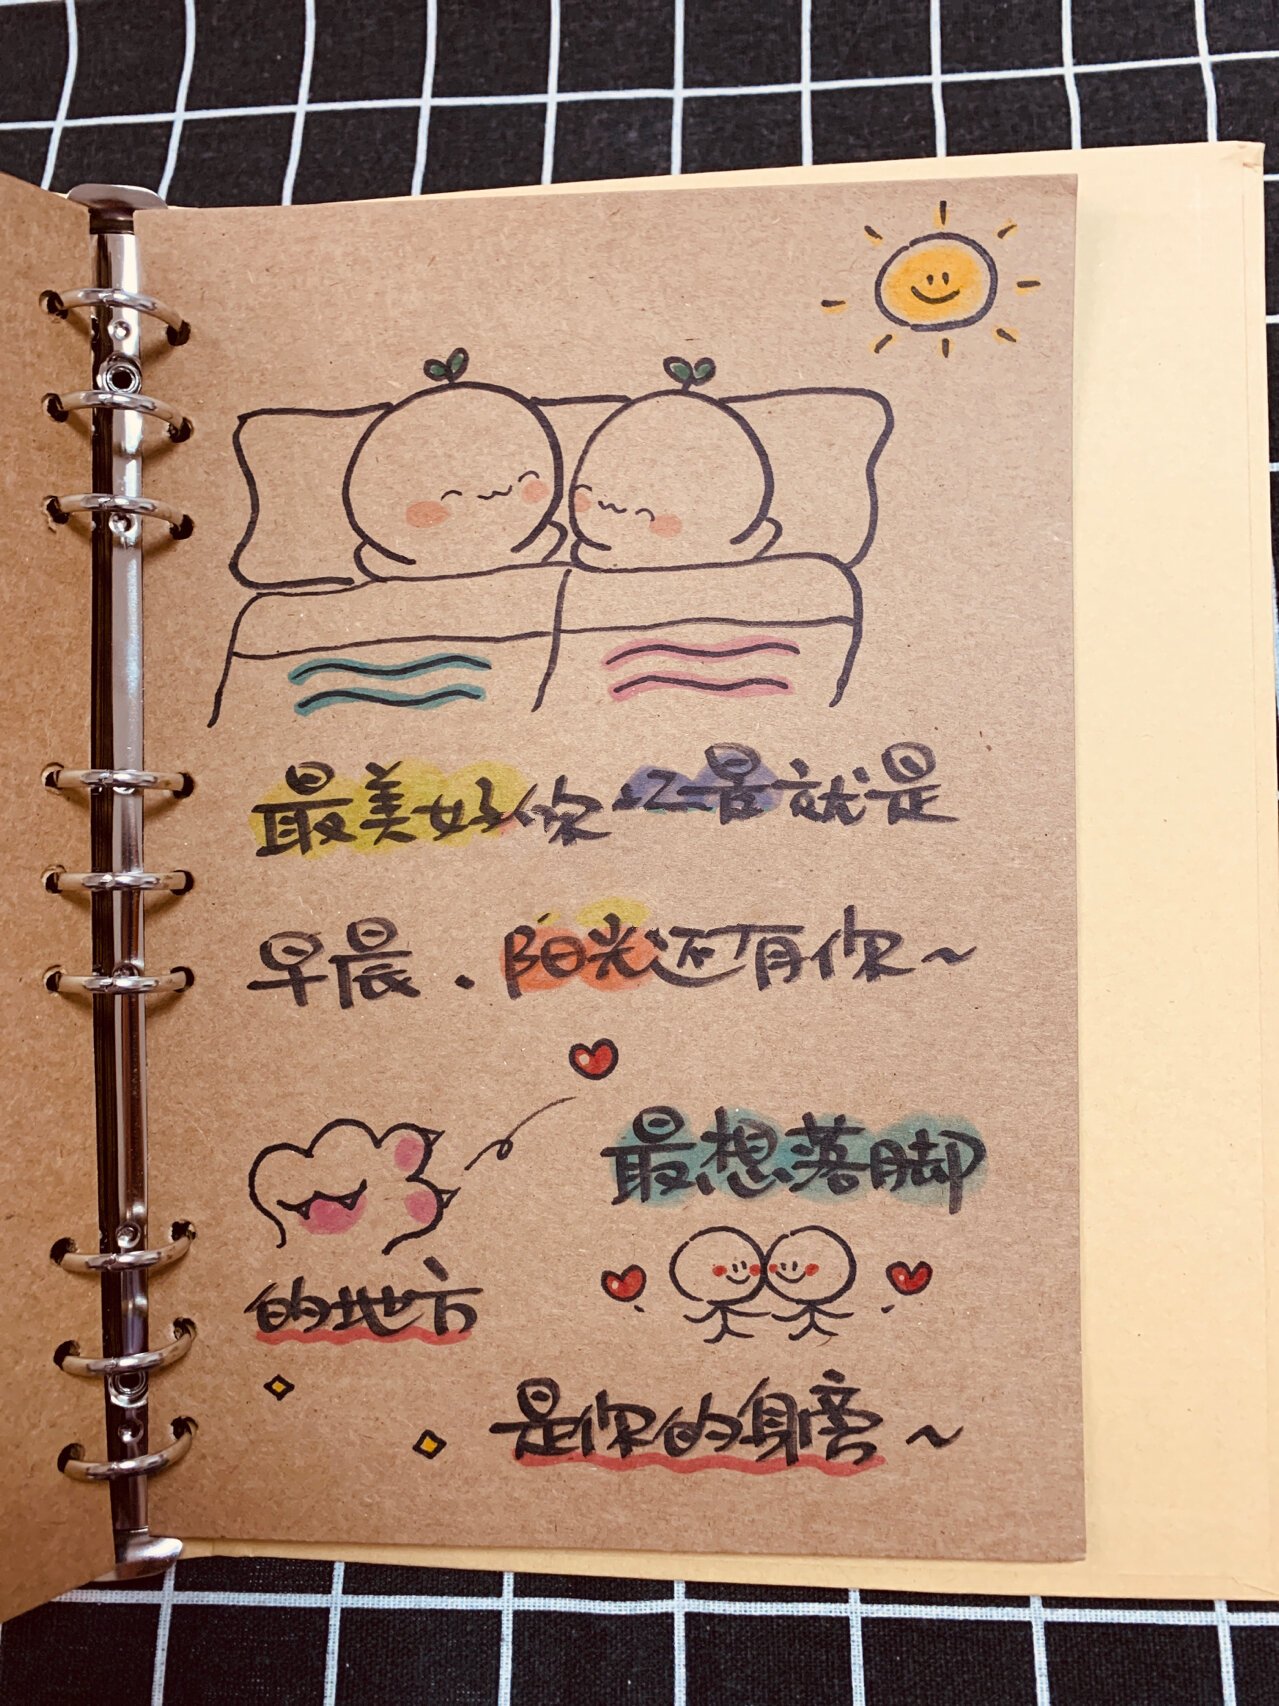 最美好你就是
早晨.阳光还有你~
最想落脚
的地方
是你的身旁~